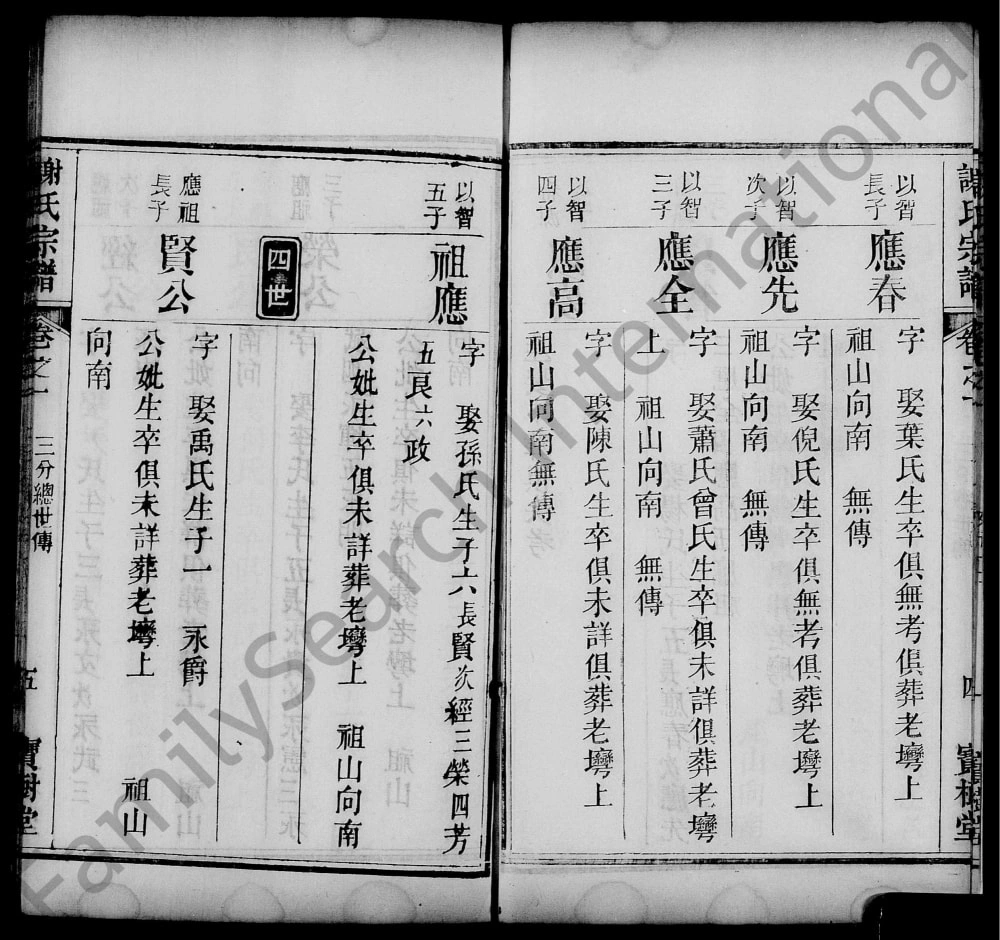 謝氏宗譜 卷之一 四 寶樹堂
以智
長子
應春
字 娶葉氏生卒俱無考俱葬老塆上
祖山向南 無傳
以智
次子
應先
字 娶倪氏生卒俱無考俱葬老塆上
祖山向南 無傳
以智
三子
應全
字 娶蕭氏曾氏生卒俱未詳俱葬老塆
上 祖山向南 無傳
以智
四子
應高
字 娶陳氏生卒俱未詳俱葬老塆上
祖山向南無傳
以智
五子
祖應
字 娶孫氏生子六長賢次經三榮四芳
五良六政
公妣生卒俱未詳葬老塆上 祖山向南
四世
應祖
長子
賢公
字 娶禹氏生子一 永爵
公妣生卒俱未詳葬老塆上 祖山
向南
謝氏宗譜 卷之一 三分總世傳 五 寶樹堂
FamilySearch International